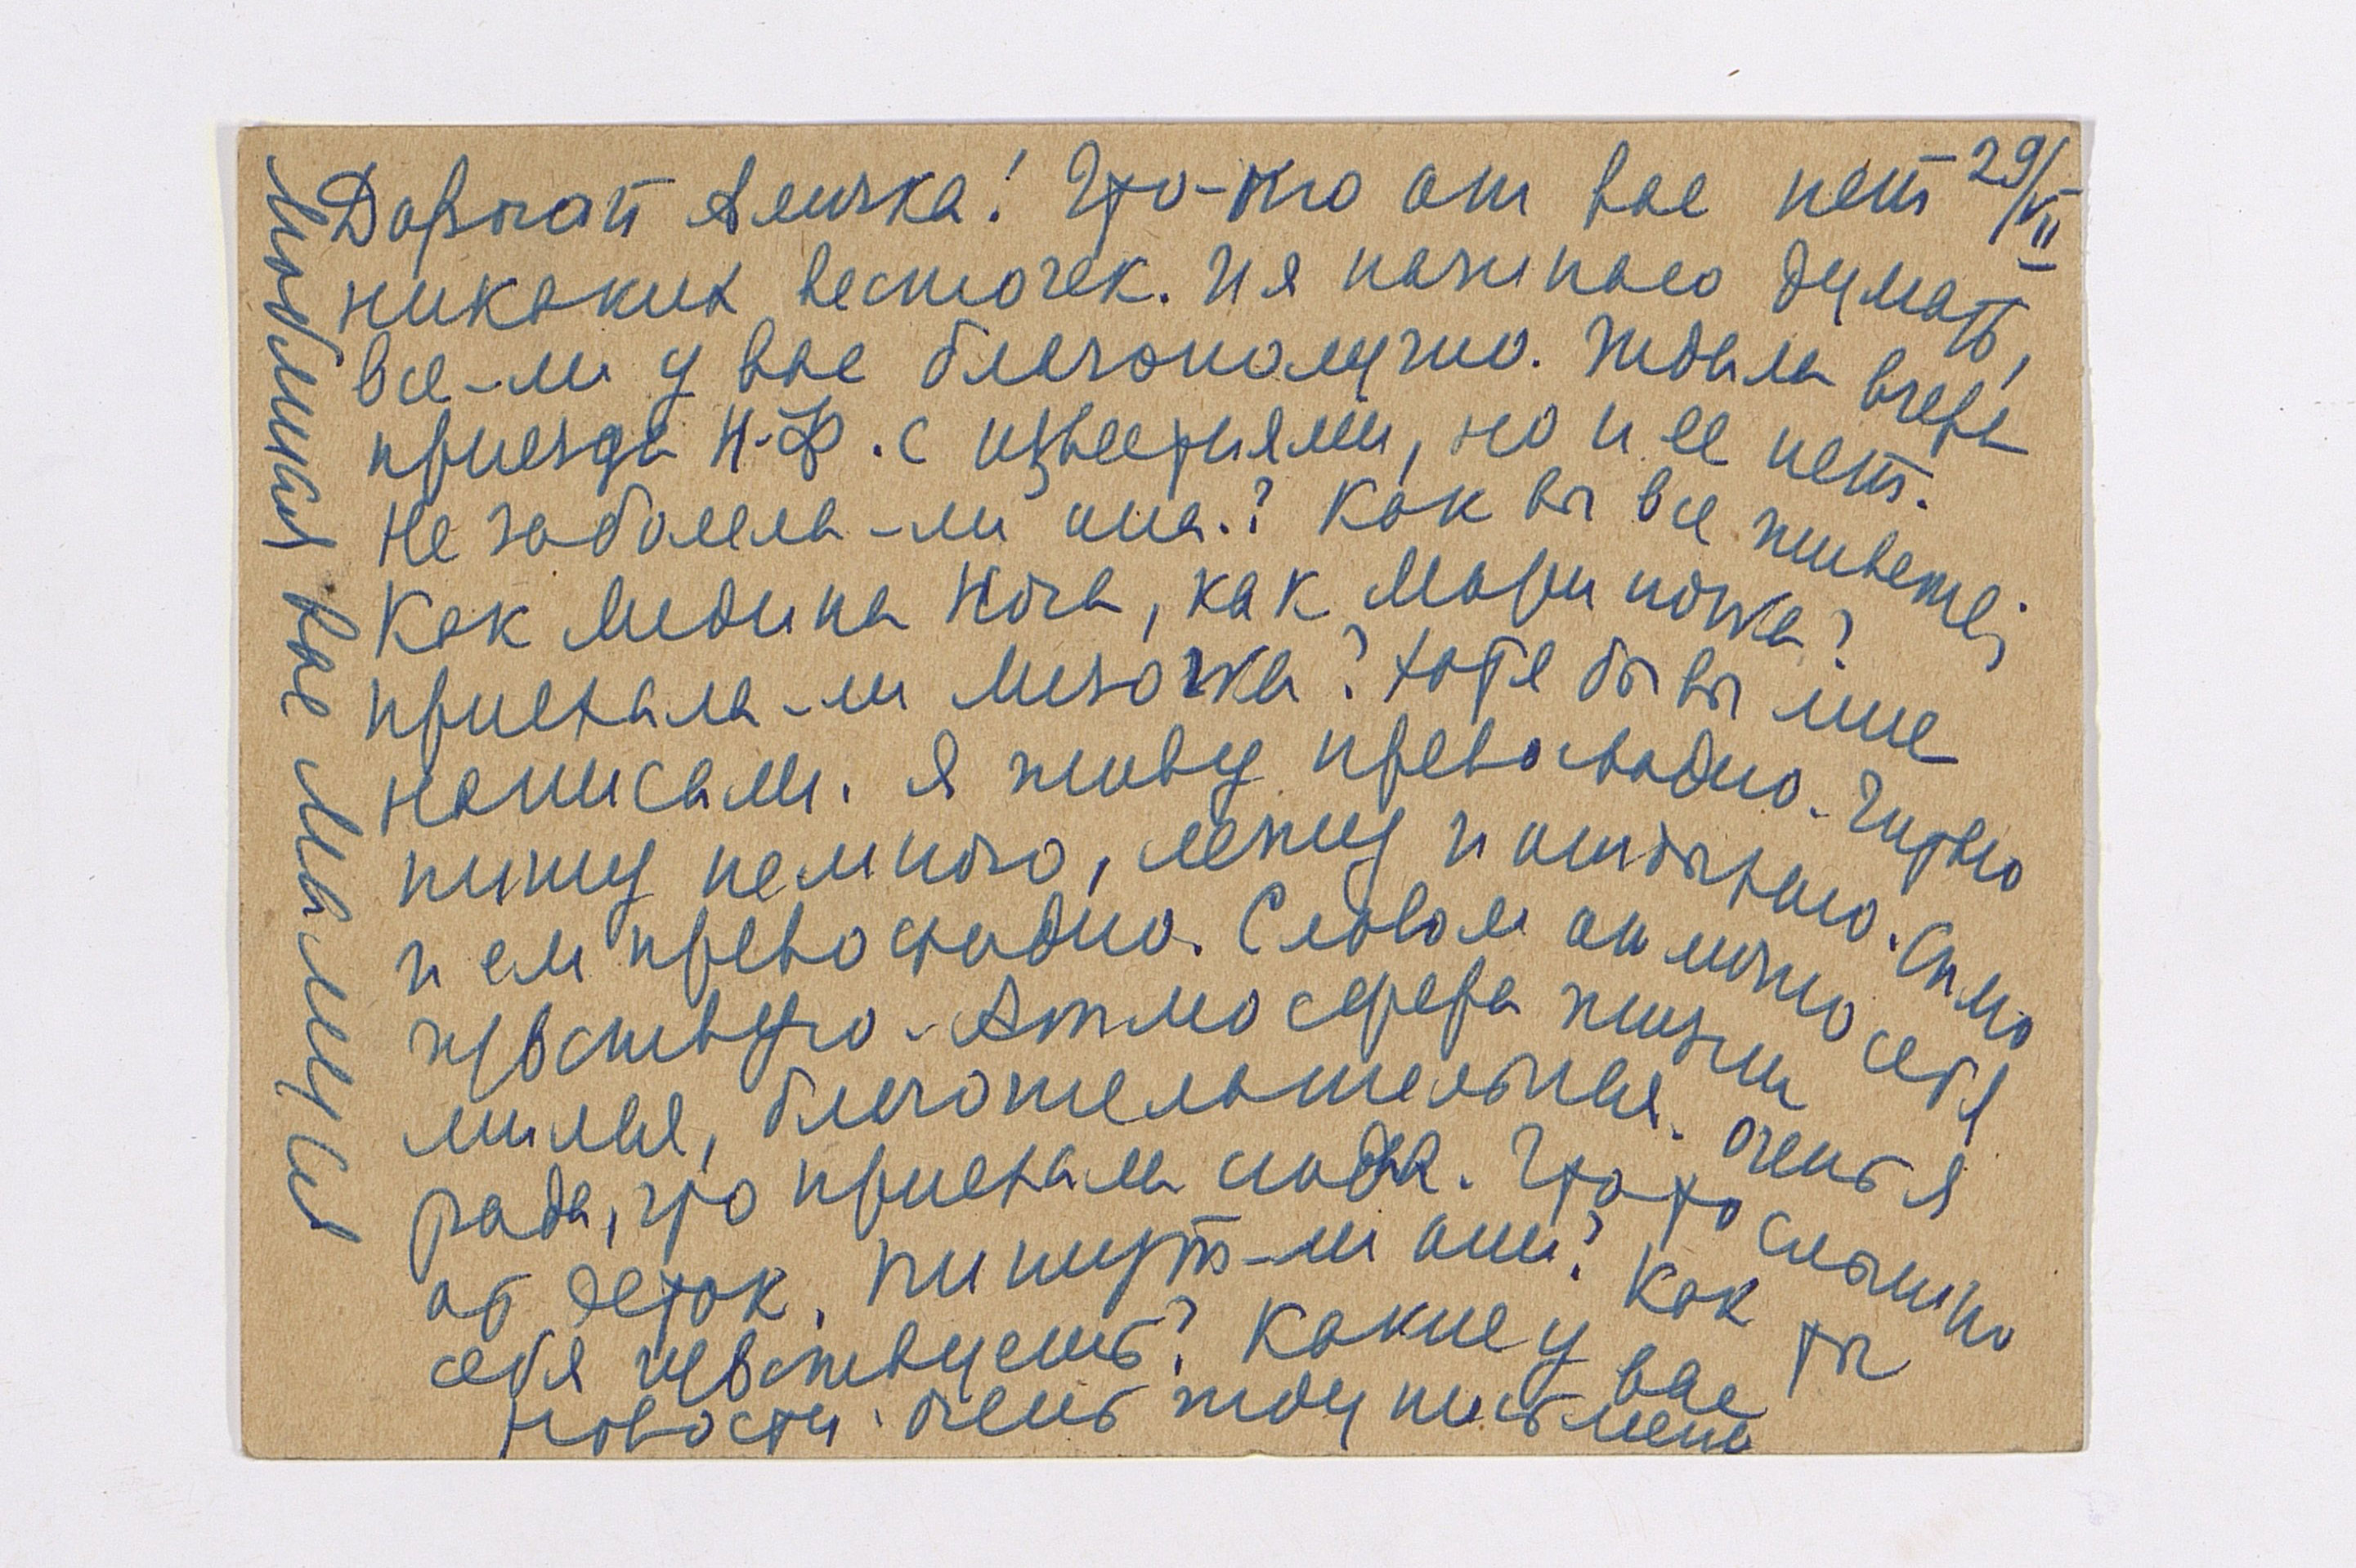 29/VII
Дорогая Аличка! Что-то от вас нет
никаких весточек. И я начинаю думать,
все-ли у вас благополучно. Ждала вчера
приезда Н.Ф. с известиями, но и ее нет.
Не заболела-ли она.? Как вы все живете;
Как Лидина нога, как Мариночка?
приехала-ли Лизочка? Хотя бы вы мне
написали. Я живу превосходно. Читаю
пишу немного, лежу и отдыхаю. Сплю
и ем превосходно. Словом отлично себя
чувствую. Атмосфера жизни
милая, благожелательная. Очень я
рада, что приехала сюда. Что-то слышно
от деток. Пишут-ли они? Как ты
себя чувствуешь? Какие у вас
новости. Очень жду писем
Любящая вас мамuса